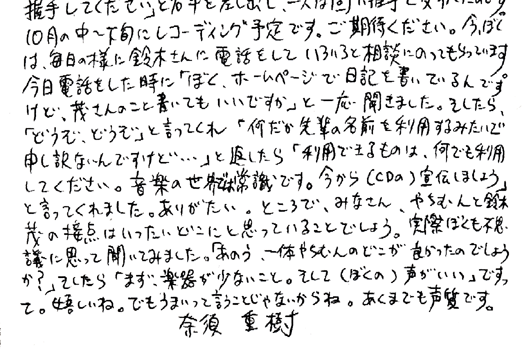 握手してください」と右手を差し出し、一人は
10月の中〜下旬にレコーディング予定です。ご期待ください。今、ぼく
は、毎日の様に鈴木さんに電話をして いろいろと相談にのってもらっています
今日電話をした時に「ぼく、ホームページで日記を書いているんです
けど、茂さんのこと書いてもいいですか」と一応聞きました。そしたら、
「どうぞ、どうぞ」と言ってくれ「何だか先輩の名前を利用するみたいで
申し訳ないんですけど…」と返したら「利用できるものは、何でも利用
してください。音楽の世界は常識です。今から(CDの)宣伝しましょう」
と言ってくれました。ありがたい。ところで、みなさん、やちむんと鈴木
茂の接点はいったいどこにと思っていることでしょう。実際ぼくも不思
議に思って聞いてみました。「あのう、一体やちむんのどこが良かったのでしょう
か?」そしたら「まず、楽器が少ないこと。そして(ぼくの)声がいい」ですっ
て。嬉しいね。でもうまいって言うことじゃないからね。あくまでも声質です。
奈須 重樹